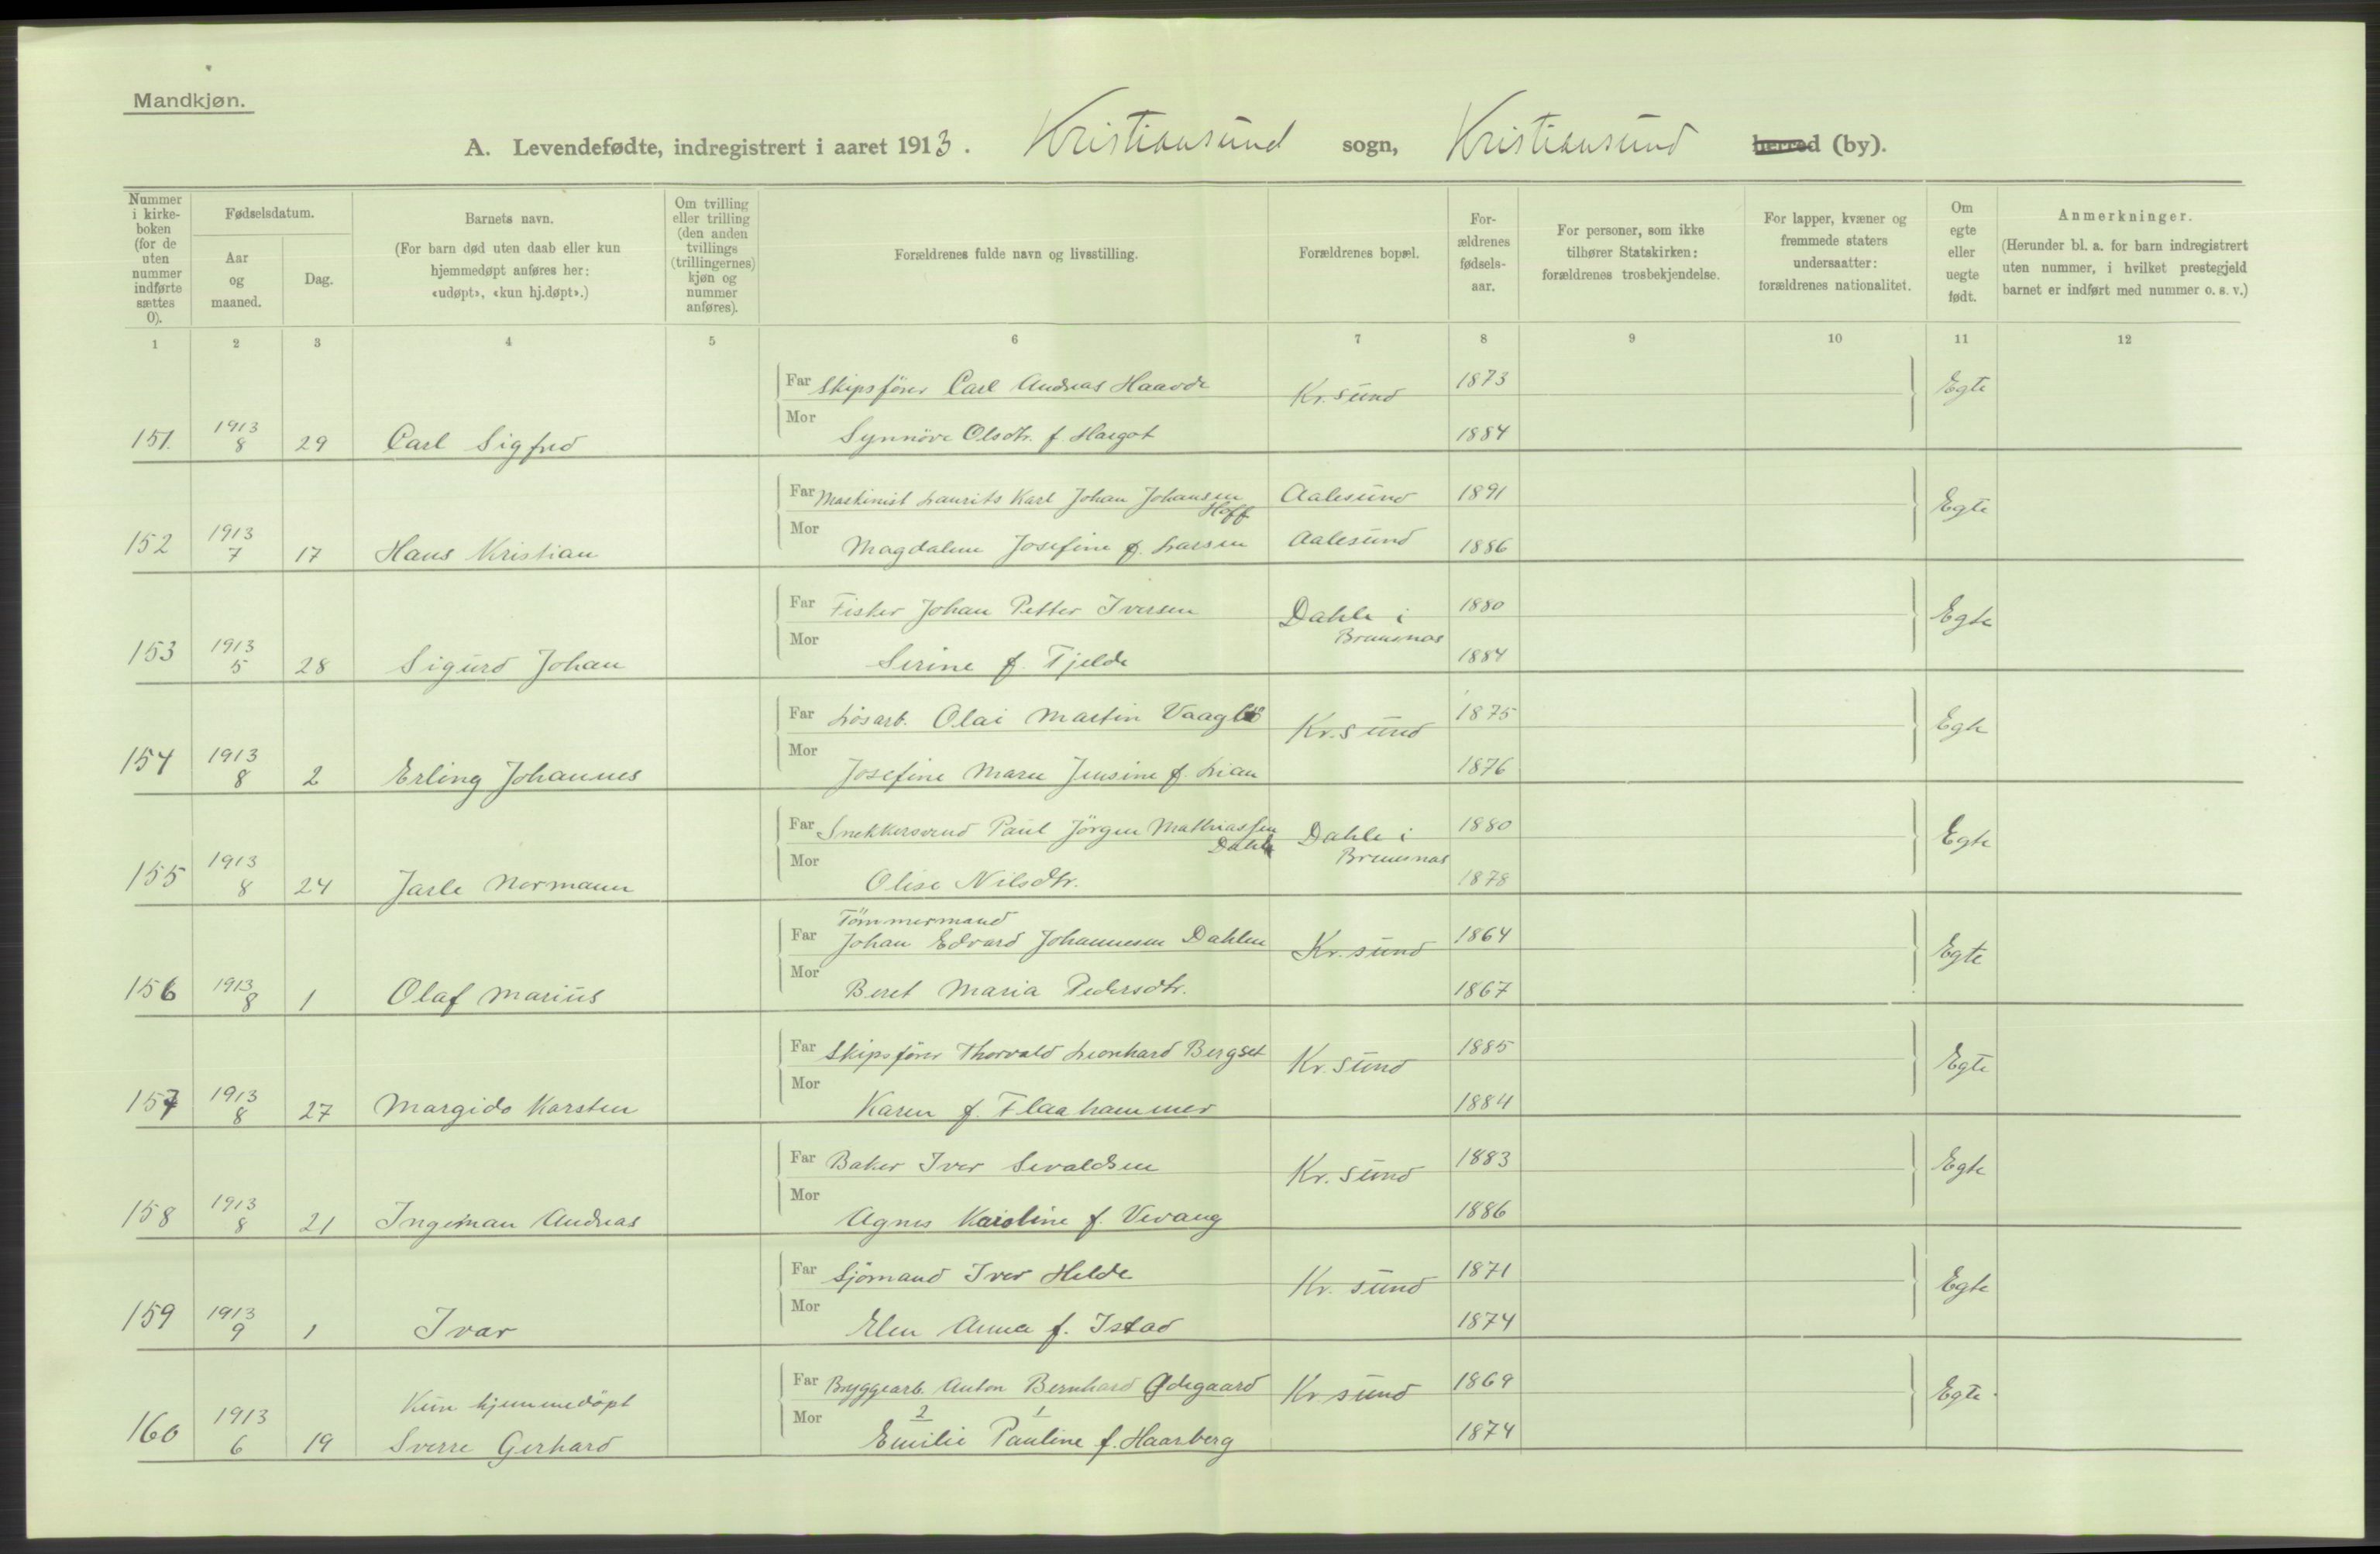 Mandkjøn.
A. Levendefødte, indregistrert i aaret 1913. Kristiansund sogn, Kristiansund herred (by).
Nummer i kirke-boken (for de uten nummer indførte sættes 0).
Fødselsdatum.
Aar og maaned.
Dag.
Barnets navn.
(For barn død uten daab eller kun hjemmedøpt anføres her: «udøpt», «kun hj.døpt».)
Om tvilling eller trilling (den anden tvillings (trillingernes) kjøn og nummer anføres).
Forældrenes fulde navn og livsstilling.
Forældrenes bopæl.
For-ældrenes fødsels-aar.
For personer, som ikke tilhører Statskirken: forældrenes trosbekjendelse.
For lapper, kvæner og fremmede staters undersaatter: forældrenes nationalitet.
Om egte eller uegte født.
Anmerkninger.
(Herunder bl. a. for barn indregistrert uten nummer, i hvilket prestegjeld barnet er indført med nummer o. s. v.)
1 2 3 4 5 6 7 8 9 10 11 12
Far Skipsfører Carl Andreas Haavde Kr.sund 1873 Egte
151. 1913 8 29 Carl Sigfred Mor Synnöve Olsdtr. f. 1884
Far Maskinist Laurits Karl Johan Johansen Hoff Aalesund 1891 Egte
152 1913 7 17 Hans Kristian Mor Magdalene Josefine f. Larsen Aalesund 1886
Far Fisker Johan Petter Iversen Dahle i Bremsnæs 1880 Egte
153 1913 5 28 Sigurd Johan Mor Serine f. Tjelde 1884
Far Løsarb. Olai Martin Vaagbö Kr.sund 1875 Egte
154 1913 8 2 Erling Johannes Mor Josefine Maren Jensine f. Lian 1876
Far Snekkersvend Paul Jörgen Mathiassen Dahle Dahle i Bremsnæs 1880 Egte
155 1913 8 24 Jarle Normann Mor Olise Nilsdtr. 1878
Far Tömmermand Johan Edvard Johannesen Dahlen Kr.sund 1864 Egte
156 1913 8 1 Olaf Marius Mor Beret Maria Pedersdtr. 1867
Far Skipsfører Thorvald Leonhard Bergset Kr.sund 1885 Egte
157 1913 8 27 Margido Karsten Mor Karen f. Flaahammer 1884
Far Baker Iver Sevaldsen Kr.sund 1883 Egte
158 1913 8 21 Ingeman Andreas Mor Agnes Karoline f. Vevang 1886
Far Sjömand Iver Helde Kr.sund 1871 Egte
159 1913 9 1 Ivar Mor Elen Anna f. Istad 1874
Far Bryggearb. Anton Bernhard Ødegaard Kr.sund 1869 Egte
Kun hjemmedöpt
160 1913 6 19 Sverre Gerhard Mor 2 Emilie 1 Pauline f. Haarberg 1874